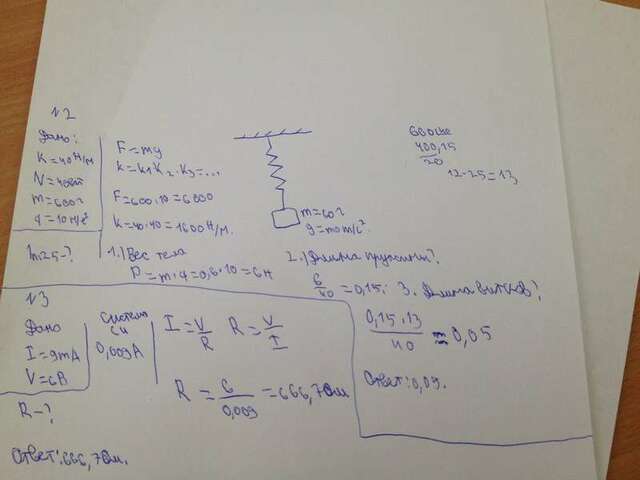 N2
Дано:
K=40H/м
N=40вит
m=600г
g=10м/с²
F=mg
K=K₁K₂·K₃=...
F=600·10=6000
K=40·40=1600H/м.
1.) Вес тела
P=m·g=0,6·10=6H
2.) Длина пружины?
6/40=0,15
3. Длина витков?
0,15·13/40=0,05
Ответ: 0,05.
m=60г
g=10м/с²
400,25
12·25=13
N3
Дано
I=9mA
V=6В
R-?
Система Си
0,009A
I=V/R
R=V/I
R=6/0,009=666,7Ом
Ответ: 666,7Ом.